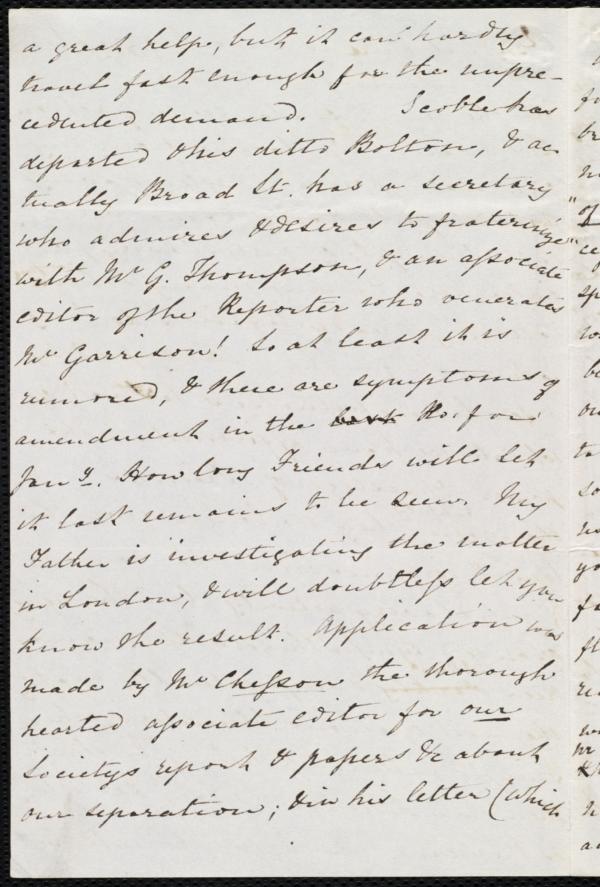 a great help, but it can hardly
travel fast enough for the unpre-
cedented demand. Scoble has
departed & his ditto Bolton, & ac
tually Broad St. has a secretary
who admires & desires to fraternize
with Mr G. Thompson, & an associate
editor of the Reporter who venerates
Mr Garrison! So at least it is
rumored, & there are symptoms of
amendment in the last No. for
Jany. How long Friends will let
it last remains to be seen. My
Father is investigating the matter
in London, & will doubtless let you
know the result. Application was
made by Mr Chesson the thorough
hearted associate editor for our
Society's report & papers &c about
our separation; & in his letter (which